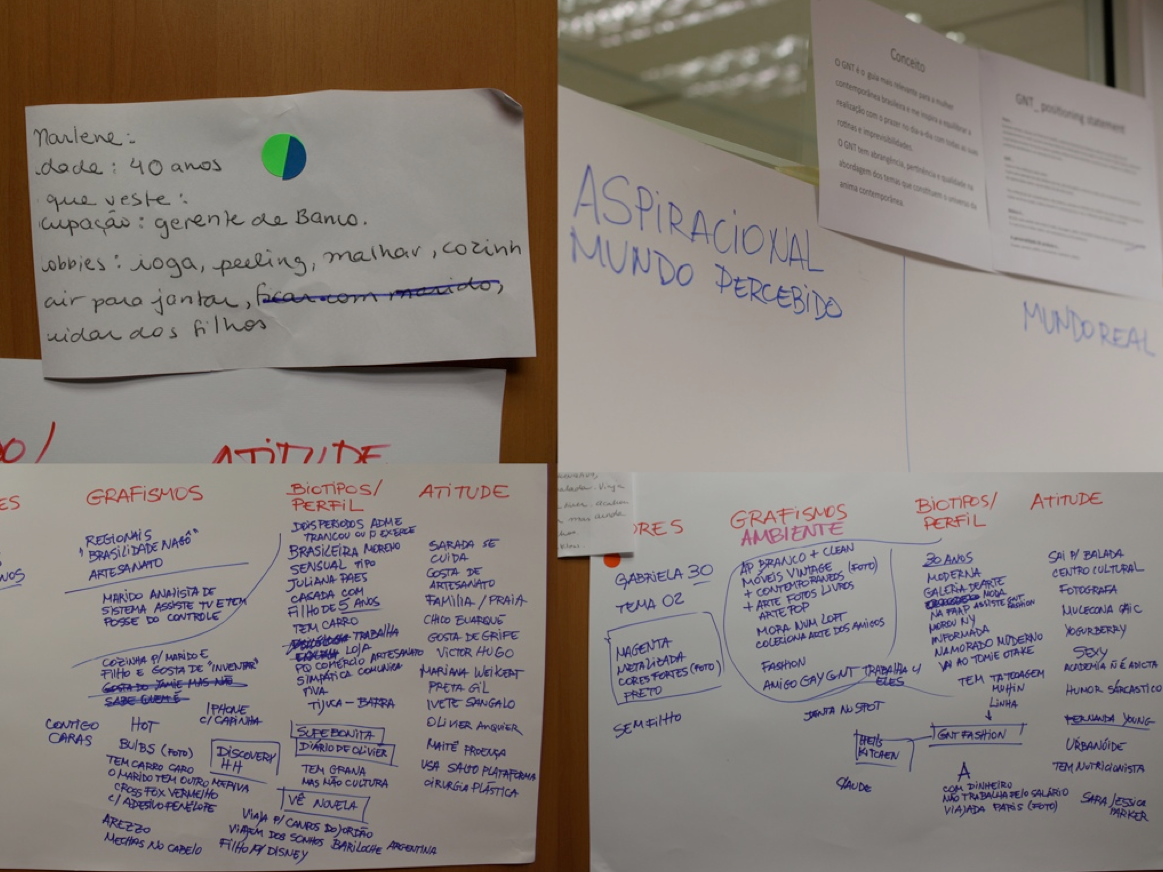 Marlene:
dade: 40 anos
que veste:
cupação: gerente de Banco.
obbies: ioga, peeling, malhar, cozinh
air para jantar, ficar com marido,
uidar dos filhos
ATITUDE
ASPIRACIONAL
MUNDO PERCEBIDO
MUNDO REAL
Conceito
O GNT é o guia mais relevante para a mulher
contemporânea brasileira e me inspira a equilibrar a
realização com o prazer no dia-a-dia com todas as suas
rotinas e imprevisibilidades.
O GNT tem abrangência, pertinência e qualidade na
abordagem dos temas que constituem o universo da
anima contemporânea.
GNT_ positioning statement
GRAFISMOS
REGIONAIS
"BRASILIDADE NAGÔ"
ARTESANATO
MARIDO ANALISTA DE
SISTEMA ASSISTE TV E TEM
POSSE DO CONTROLE
COZINHA P/ MARIDO E
FILHO E GOSTA DE "INVENTAR"
GOSTA DO JAMIE MAS NÃO
SABE QUEM É
CONTIGO
CARAS
HOT
IPHONE
C/ CAPINHA
BULBS (FOTO)
DISCOVERY
HH
TEM CARRO CARO
O MARIDO TEM OUTRO
CROSS FOX VERMELHO
C/ ADESIVO PENÉLOPE
AREZZO
MECHAS NO CABELO
BIOTIPOS/
PERFIL
DOIS PERIODOS ADME
TRANCOU OU Ñ EXERCE
BRASILEIRA MORENO
SENSUAL TIPO
JULIANA PAES
CASADA COM
FILHO DE 5 ANOS
TEM CARRO
TRABALHA
LOJA
PQ COMÉRCIO ARTESANATO
SIMPÁTICA COMUNICA
TIVA
TIJUCA - BARRA
SUPERBONITA
DIÁRIO DE OLIVIER
TEM GRANA
MAS NÃO CULTURA
VÊ NOVELA
VIAJA P/ CAMPOS DO JORDÃO
VIAGEM DOS SONHOS BARILOCHE ARGENTINA
FILHO P/ DISNEY
ATITUDE
SARADA SE
CUIDA
GOSTA DE
ARTESANATO
FAMILIA / PRAIA
CHICO BUARQUE
GOSTA DE GRIFE
VICTOR HUGO
MARIANA WEICKERT
PRETA GIL
IVETE SANGALO
OLIVIER ANQUIER
MAITÊ PROENÇA
USA SALTO PLATAFORMA
CIRURGIA PLÁSTICA
ORES
GABRIELA 30
TEMA 02
MAGENTA
METALIZADA
CORES FORTES (FOTO)
PRETO
SEM FILHO
GRAFISMOS
AMBIENTE
AP BRANCO + CLEAN
MÓVEIS VINTAGE (FOTO)
+ CONTEMPORANEOS
+ ARTE FOTOS LIVROS
ARTE POP
MORA NUM LOFT
COLECIONA ARTE DOS AMIGOS
FASHION
AMIGO GAY GNT TRABALHA C/
ELES
JANTA NO SPOT
HELL'S
KITCHEN
SAUDE
BIOTIPOS/
PERFIL
30 ANOS
MODERNA
GALERIA DE ARTE
MODA
NA FAAP ASSISTE GNT
FASHION
MOROU NY
INFORMADA
NAMORADO MODERNO
VAI AO TOMIE OTAKE
TEM TATOOAGEM
LINHA
GNT FASHION
A
COM DINHEIRO
NÃO TRABALHA PELO SALÁRIO
VIAJADA PARIS (FOTO)
ATITUDE
SAI P/ BALADA
CENTRO CULTURAL
FOTOGRAFA
MULECONA CHIC
YOGURBERRY
SEXY
ACADEMIA Ñ É ADICTA
HUMOR SARCÁSTICO
FERNANDA YOUNG
URBANÓIDE
TEM NUTRICIONISTA
SARA JESSICA
PARKER